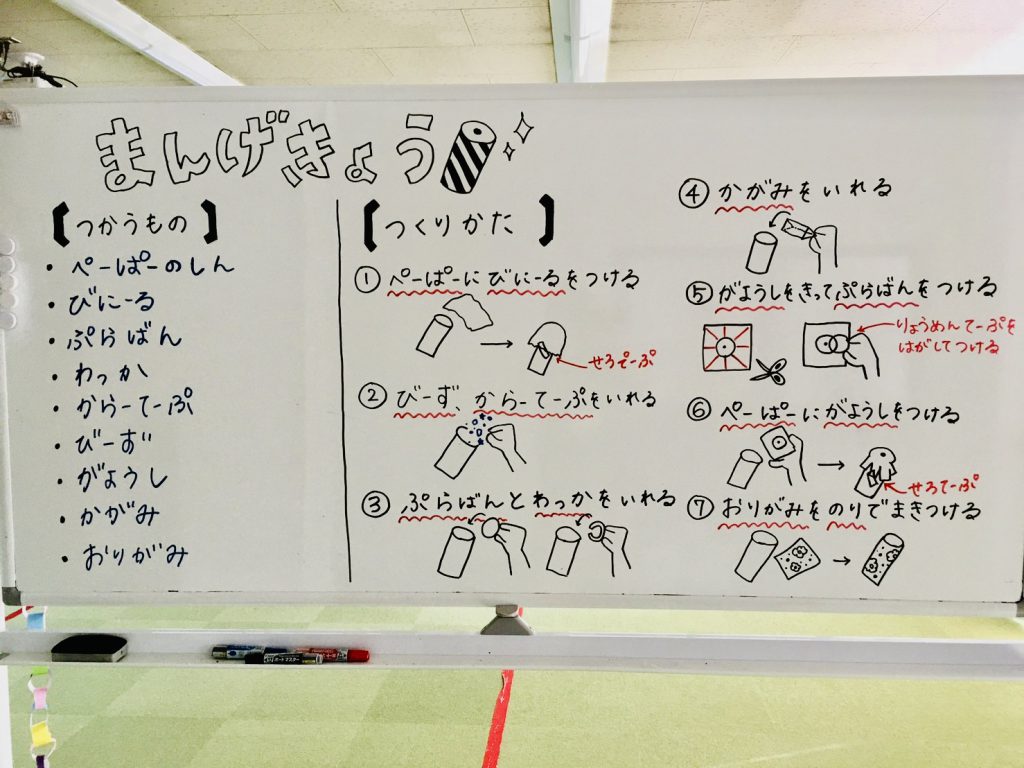 まんげきょう
【つかうもの】
・ぺーぱーのしん
・びにーる
・ぷらばん
・わっか
・からーてーぷ
・びーず
・がようし
・かがみ
・おりがみ
【つくりかた】
①ぺーぱーにびにーるをつける
せろてーぷ
②びーず、からーてーぷをいれる
③ぷらばんとわっかをいれる
④かがみをいれる
⑤がようしをきってぷらばんをつける
りょうめんてーぷを
はがしてつける
⑥ぺーぱーにがようしをつける
せろてーぷ
⑦おりがみをのりでまきつける